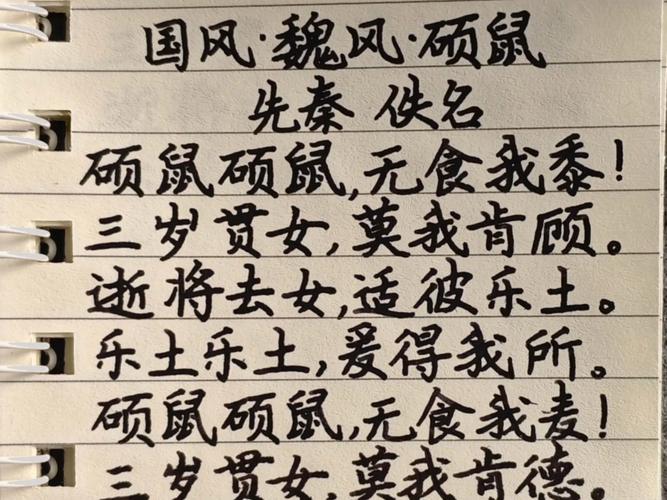 国风·魏风·硕鼠
先秦 佚名
硕鼠硕鼠,无食我黍!
三岁贯女,莫我肯顾。
逝将去女,适彼乐土。
乐土乐土,爰得我所。
硕鼠硕鼠,无食我麦!
三岁贯女,莫我肯德。